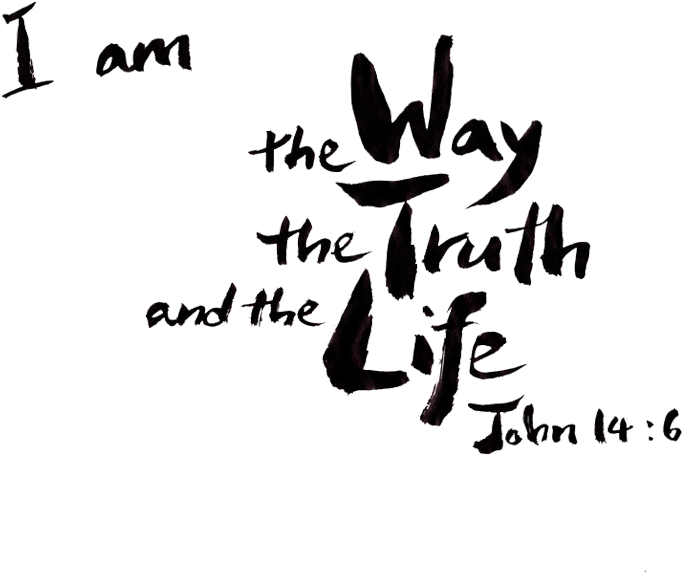 I am
the Way
the Truth
and the Life
John 14:6